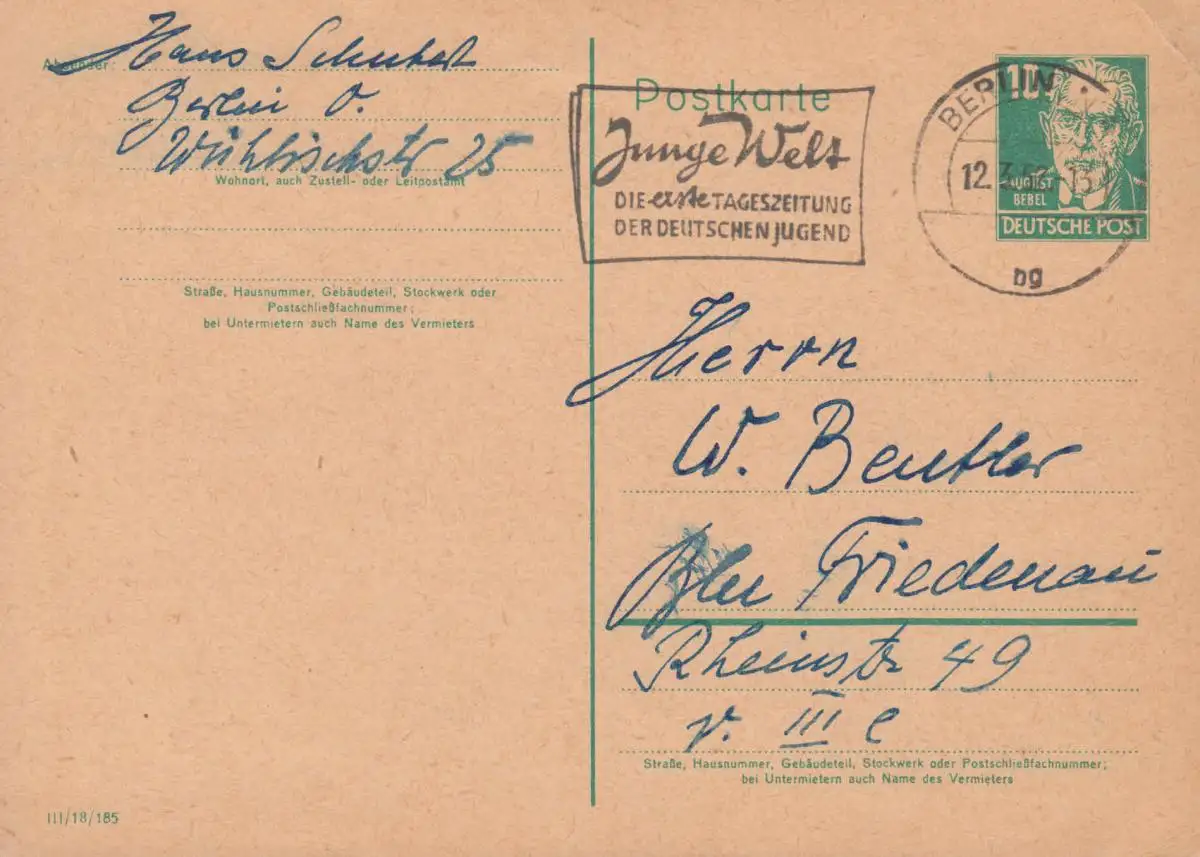 Absender:
Hans Schubert
Berlin O.
Wühlischstr 25
Wohnort, auch Zustell- oder Leitpostamt
Straße, Hausnummer, Gebäudeteil, Stockwerk oder
Postschließfachnummer;
bei Untermietern auch Name des Vermieters
III/18/185
Postkarte
Junge Welt
DIE erste TAGESZEITUNG
DER DEUTSCHEN JUGEND
BERLIN
12.3.
bg
10
AUGUST
BEBEL
DEUTSCHE POST
Herrn
W. Beutler
Bln Friedenau
Rheinstr 49
v. III e
Straße, Hausnummer, Gebäudeteil, Stockwerk oder Postschließfachnummer;
bei Untermietern auch Name des Vermieters